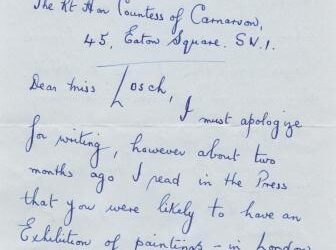 The Rt Hon Countess of Carnarvon,
45, Eaton Square. S.W.1.
Dear Miss Losch,
I must apologize
for writing, however about two
months ago I read in the Press
that you were likely to have an
Exhibition of paintings - in London